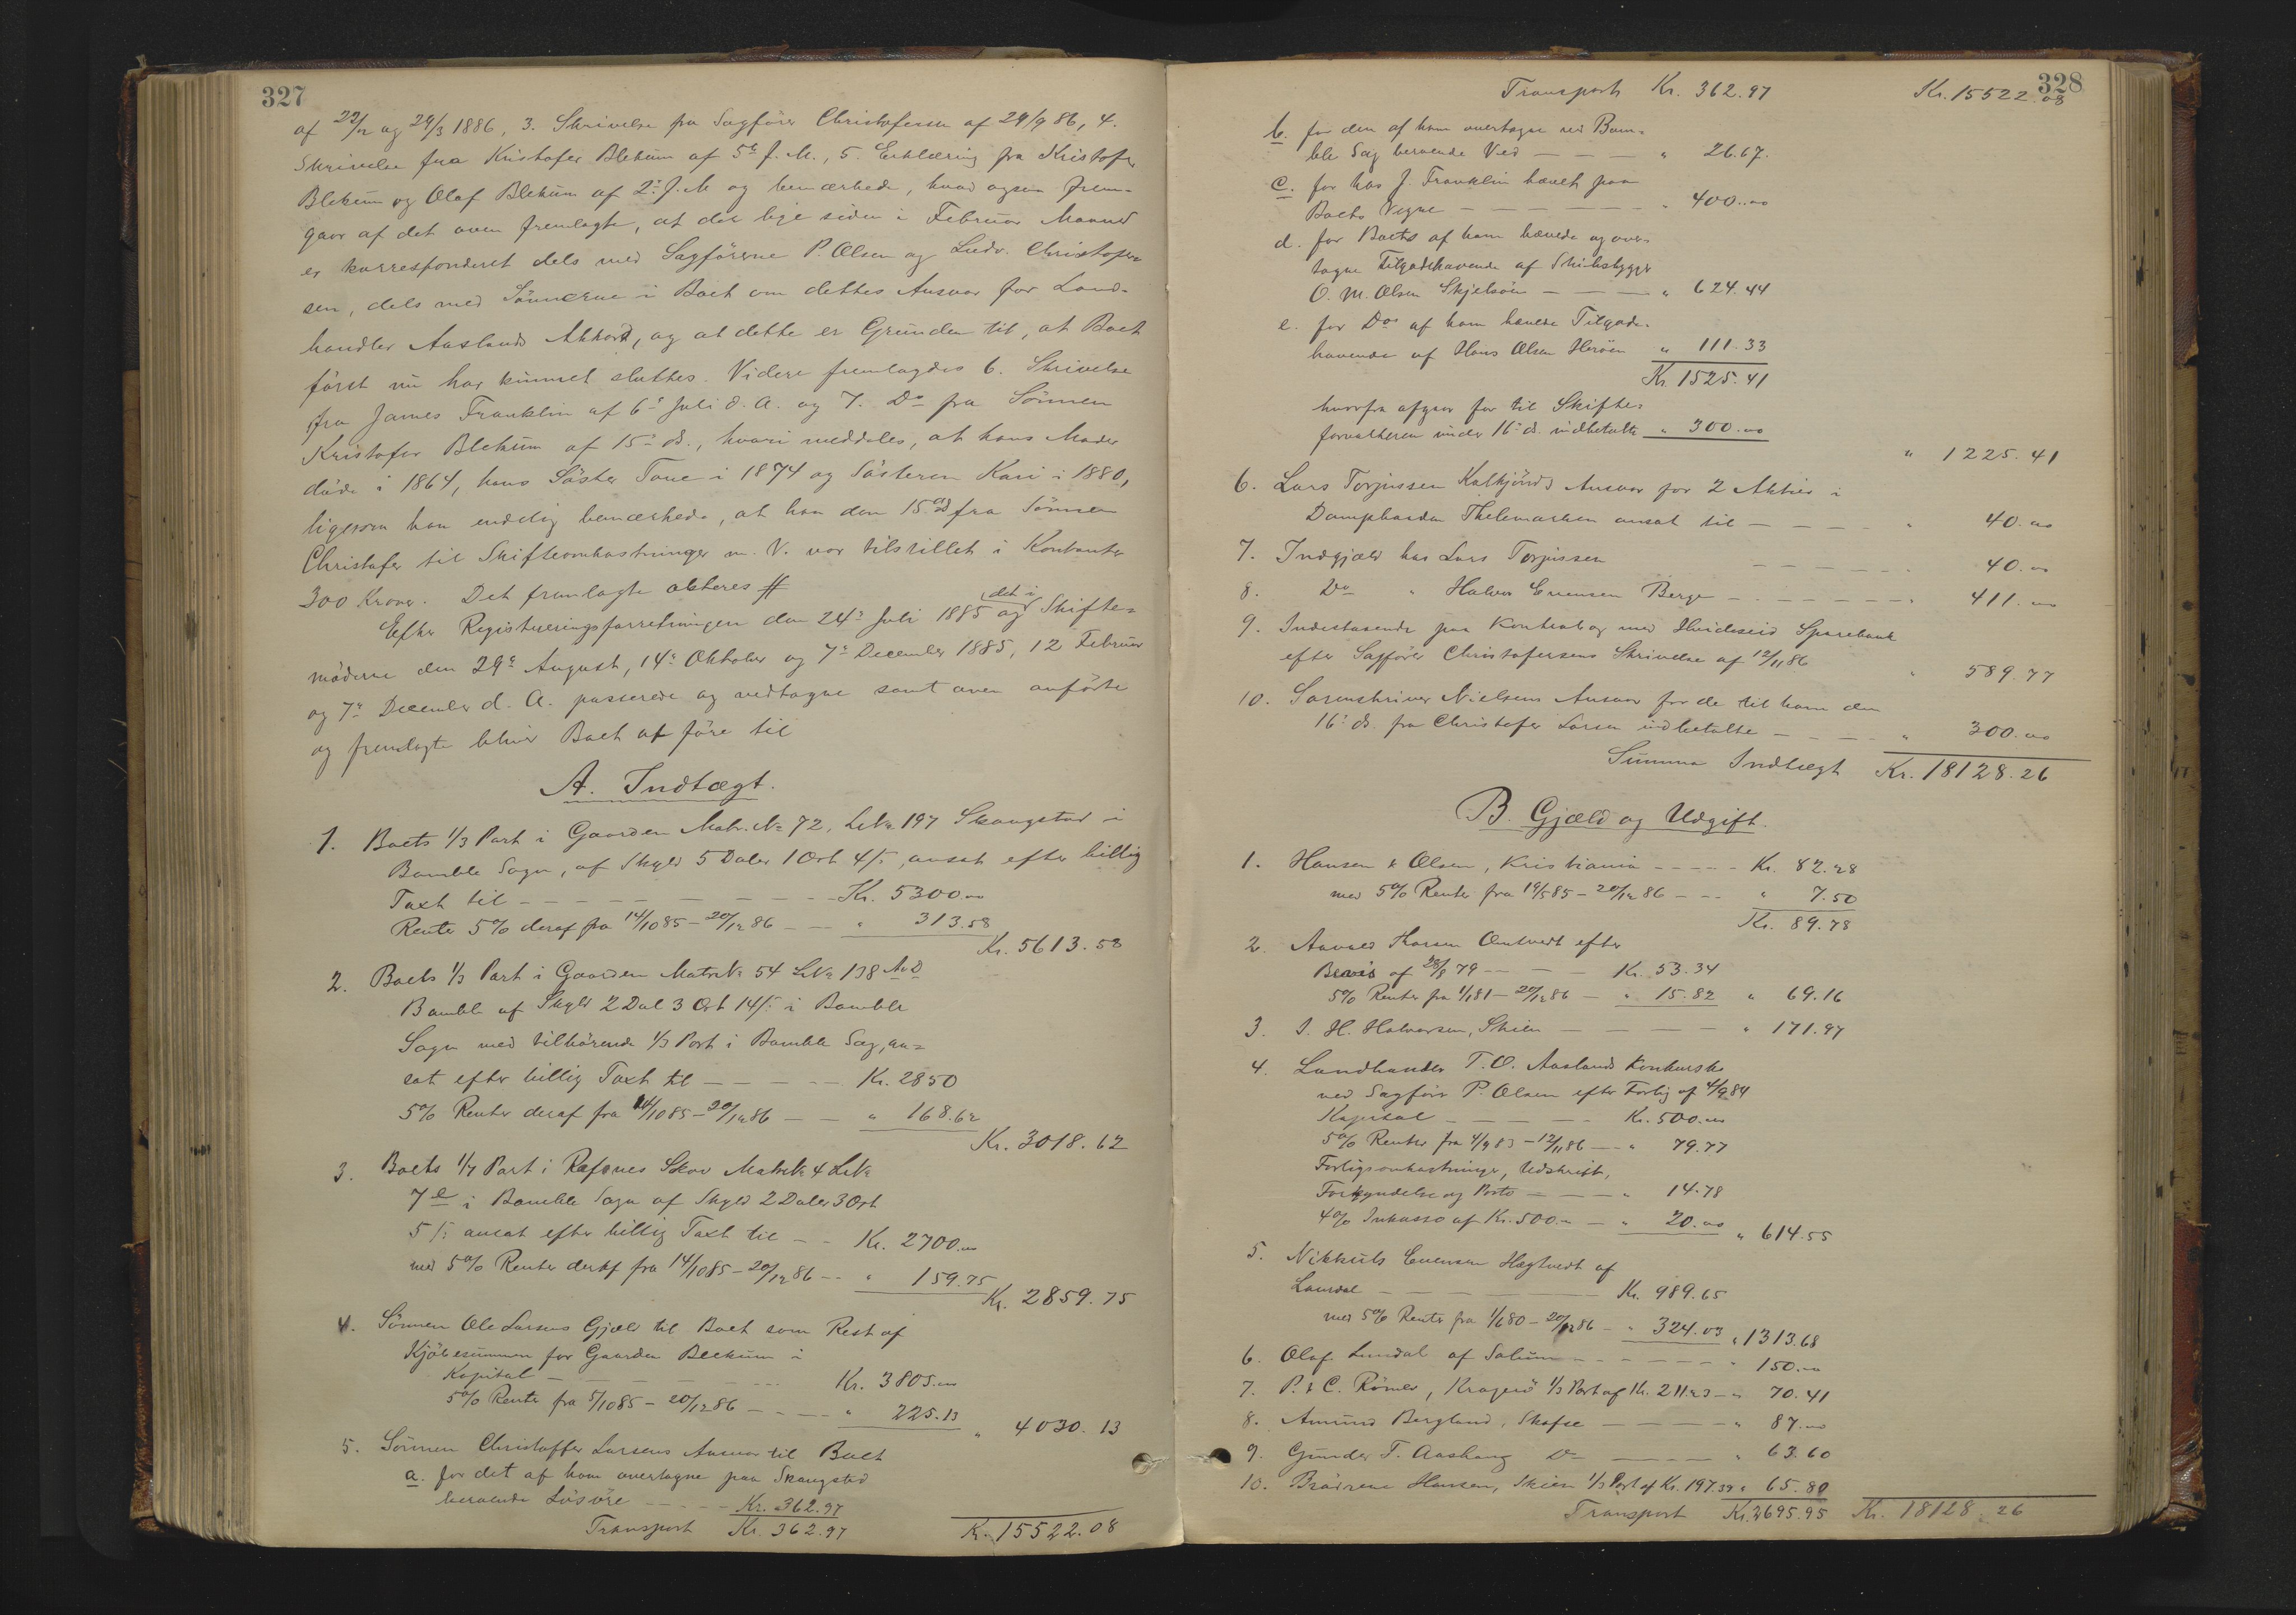 327
af 22/12 og 29/3 1886, 3. Skrivelse fra Sagfører Christofersen af 29/9 86, 4.
Skrivelse fra Kristofer Blekum af 5te f. M., 5. Erklæring fra Kristofer
Blekum og Olaf Blekum af 2. f. M og bemærkede, hvad ogsaa frem-
gaar af det oven fremlagte, at der lige siden i Februar Maaned
er korresponderet dels med Sagførerne P. Olsen og Ludv. Christofer-
sen, dels med Sønnerne i Boet om dettes Ansvar for Land-
handler Aaslands Akkord, og at dette er Grunden til, at Boet
først nu har kunnet sluttes. Videre fremlagdes 6. Skrivelse
fra James Franklin af 6te Juli d. A. og 7. Do fra Sønnen
Kristofer Blekum af 15de ds., hvori meddeles, at hans Moder
døde i 1864, hans Søster Tone i 1874 og Søsteren Kari i 1880,
ligesom han endelig bemærkede, at han den 15de ds fra Sønnen
Christofer til Skifteomkostninger m. V. var tilstillet i Kontanter
300 Kroner. Det fremlagte akteres #
Efter Registreringsforretningen den 24de Juli 1885 og (det i) Skifte=
møderne den 29de August, 14de Oktober og 7de December 1885, 12 Februar
og 7de December d. A. passerede og vedtagne samt oven anførte
og fremlagte bliver Boet at føre til
A. Indtægt.
1. Boets 1/3 Part i Gaarden Matr. No 72, LNo 197 Skaugstad i
Bamble Sogn, af Skyld 5 Daler 1 Ort 4 /:, ansat efter billig
Taxt til - - - - - - - - Kr. 5300.00
Renter 5% deraf fra 14/10 85 - 20/12 86 - - " 313.58
Kr. 5613.58
2. Boets 1/3 Part i Gaarden MatrNo 54 LNo 138 A&D
Bamble af Skyld 2 Dal 3 Ort 14 /: i Bamble
Sogn med tilhørende 1/3 Part i Bamble Sag, an=
sat efter billig Taxt til - - - - - Kr. 2850
5% Renter deraf fra 14/10 85 - 20/12 86 - - " 168.62
Kr. 3018.62
3. Boets 1/4 Part i Rafnes Skov MatrNo 4 LNo
7 e i Bamble Sogn af Skyld 2 Daler 3 Ort
5 /: ansat efter billig Taxt til - - Kr. 2700.00
med 5% Renter deraf fra 14/10 85 - 20/12 86 - - " 159.75
Kr. 2859.75
4. Sønnen Ole Larsens Gjæld til Boet som Rest af
Kjøbesummen for Gaarden Blekum i
Kapital - - - - - - Kr. 3805.00
5% Renter fra 5/10 85 - 20/12 86 - - - - " 225.13
" 4030.13
5. Sønnen Christoffer Larsens Ansvar til Boet
a. for det af ham overtagne paa Skaugstad
beroende Løsøre - - - - Kr. 362.97
Transport Kr. 362.97 Kr. 15522.08
328
Transport Kr. 362.97 Kr. 15522.08
b. for den af ham overtagne ved Bam=
ble Sag beroende Ved - - - " 26.67.
c. for hos J. Franklin hævet paa
Boets Vegne - - - - - - " 400.00
d. for Boets af ham hævede og over=
tagne Tilgodehavende af Skibsbygger
O. M. Olsen Skjelsøen - - - " 624.44
e. for Dos af ham hævede Tilgode-
havende af Hans Olsen Herøen " 111.33
Kr. 1525.41
hvorfra afgaar for til Skifte=
forvalteren under 16de ds. indbetalte " 300.00
" 1225.41
6. Lars Torjussen Kalkjønds Ansvar for 2 Aktier i
Dampbaaden Thelemarken ansat til - - - - " 40.00
7. Indgjæld hos Lars Torjussen - - - - - - 40.00
8. Do " Halvor Evensen Berge - - - - - - " 411.00
9. Indestaaende paa Kontrabog med Hvideseid Sparebank
efter Sagfører Christofersens Skrivelse af 12/11 86 " 589.77
10. Sorenskriver Nielsens Ansvar for de til ham den
16de ds. fra Christofer Larsen indbetalte - - - - " 300.00
Summa Indtægt Kr. 18128.26
B. Gjæld og Udgift.
1. Hansen & Olsen, Kristiania - - - - - Kr. 82.28
med 5% Renter fra 19/5 85 - 20/12 86 - - - " 7.50
Kr. 89.78
2. Aanund Thorsen Omtvedt efter
Bevis af 28/8 79 - - - - Kr. 53.34
5% Renter fra 1/1 81 - 20/12 86 - " 15.82 " 69.16
3. I. H. Halvorsen, Skien - - - - - " 171.97
4. Landhandler T. O. Aaslands Konkursbo
ved Sagfører P. Olsen efter Forlig af 4/9 84
Kapital - - - - - Kr. 500.00
5% Renter fra 4/9 83 - 12/11 86 - - " 79.77
Forligsomkostninger, Udskrift,
Forkyndelse og Porto - - - - " 14.78
4% Inkasso af Kr. 500.- - " 20.00 " 614.55
5. Nikkuls Evensen Hægtvedt af
Laurdal - - - - - - - Kr. 989.65
med 5% Renter fra 1/6 80 - 20/12 86 - " 324.03 " 1313.68
6. Olaf Lundal af Solum - - - - - - " 150.00
7. P. & C. Rømer, Kragerø 1/3 Part af Kr. 211.23 - " 70.41
8. Amund Bergland, Skafse - - - - - " 87.00
9. Gunder T. Aashaug Do - - - - - " 63.60
10. Brødrene Hansen, Skien 1/3 Part af Kr. 197.39 " 65.80
Transport Kr. 2695.95 Kr. 18128.26